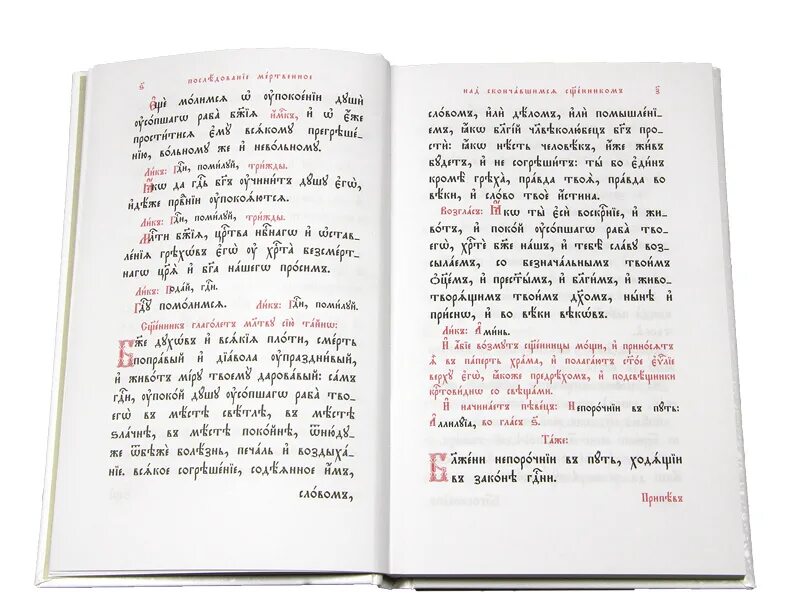 ѕ҃ послѣдованїе ме́ртвенное
Є҆щѐ мо́лимсѧ ѡ҆ ᲂу҆поко́енїи дꙋшѝ
ᲂу҆со́пшагѡ раба̀ бж҃їѧ и҆́м҃къ, и҆ ѡ҆ є҆́же
прости́тисѧ є҆мꙋ̀ всѧ́комꙋ прегрѣше́-
нїю, во́льномꙋ же и҆ нево́льномꙋ.
Ли́къ: Гдⷭ҇и, поми́лꙋй, три́жды.
Ꙗ҆́кѡ да гдⷭ҇ь бг҃ъ ᲂу҆чини́тъ дꙋ́шꙋ є҆гѡ̀,
и҆дѣ́же пра́вⷣнїи ᲂу҆покоѧ́ютсѧ.
Ли́къ: Гдⷭ҇и, поми́лꙋй, три́жды.
Ми́лⷭ҇ти бж҃їѧ, црⷭ҇тва нбⷭ҇нагѡ и҆ ѡ҆ставле́-
нїѧ грѣхѡ́въ є҆гѡ̀ ᲂу҆ хрⷭ҇та̀ безсме́рт-
нагѡ цр҃ѧ̀ и҆ бг҃а на́шегѡ про́симъ.
Ли́къ: Пода́й, гдⷭ҇и.
Гдⷭ҇ꙋ помо́лимсѧ. Ли́къ: Гдⷭ҇и, поми́лꙋй.
Сщ҃е́нникъ глаго́летъ мл҃твꙋ сїю̀ та́йнѡ:
Бж҃е дꙋхѡ́въ и҆ всѧ́кїѧ пло́ти, сме́рть
попра́вый и҆ дїа́вола ᲂу҆праздни́вый,
и҆ живо́тъ мі́рꙋ твоемꙋ̀ дарова́вый: са́мъ
гдⷭ҇и, ᲂу҆поко́й дꙋ́шꙋ ᲂу҆со́пшагѡ раба̀ тво-
егѡ̀ въ мѣ́стѣ свѣ́тлѣ, въ мѣ́стѣ
ѕла́чнѣ, въ мѣ́стѣ поко́йнѣ, ѿню́дꙋ-
же ѿбѣжѐ болѣ́знь, печа́ль и҆ воздыха́-
нїе. всѧ́кое согрѣше́нїе, содѣ́ѧнное и҆́мъ,
сло́вомъ,
над̾ сконча́вшимсѧ сщ҃е́нникомъ
сло́вомъ, и҆лѝ дѣ́ломъ, и҆лѝ помышле́нї-
емъ, ꙗ҆́кѡ бл҃гі́й чл҃вѣколю́бецъ бг҃ъ про-
стѝ: ꙗ҆́кѡ нѣ́сть человѣ́къ, и҆́же жи́въ
бꙋ́детъ, и҆ не согрѣши́тъ: ты́ бо є҆ди́нъ
кромѣ̀ грѣха̀, пра́вда твоѧ̀, пра́вда во
вѣ́ки, и҆ сло́во твоѐ и҆́стина.
Во́згласъ: Ꙗ҆́кѡ ты̀ є҆сѝ воскрⷭ҇нїе, и҆ жи-
во́тъ, и҆ поко́й ᲂу҆со́пшагѡ раба̀ тво-
егѡ̀, хрⷭ҇тѐ бж҃е на́шъ, и҆ тебѣ̀ сла́вꙋ воз-
сыла́емъ, со безнача́льнымъ твои́мъ
ѻ҆ц҃е́мъ, и҆ прест҃ы́мъ, и҆ бл҃ги́мъ, и҆ живо-
творѧ́щимъ твои́мъ дх҃омъ, ны́нѣ и҆
при́снѡ, и҆ во вѣ́ки вѣкѡ́въ.
Ли́къ: А҆ми́нь.
И҆ а҆́бїе во́змꙋтъ сщ҃е́нницы мо́щи, и҆ прино́сѧтъ
ѧ҆̀ въ па́перть хра́ма, и҆ полага́ютъ ст҃о́е є҆ѵⷢ҇лїе
верхꙋ̀ є҆гѡ̀, ꙗ҆́коже предрѣ́хомъ, и҆ подсвѣ́щники
крⷭ҇тови́днѡ со свѣща́ми.
И҆ начина́етъ пѣве́цъ: Непоро́чнїи въ пꙋ́ть:
А҆ллилꙋ́їа, во гла́съ ѕ҃.
Та́же:
Бл҃же́ни непоро́чнїи въ пꙋ́ть, ходѧ́щїи
въ зако́нѣ гдⷭ҇ни.
Припѣ́въ